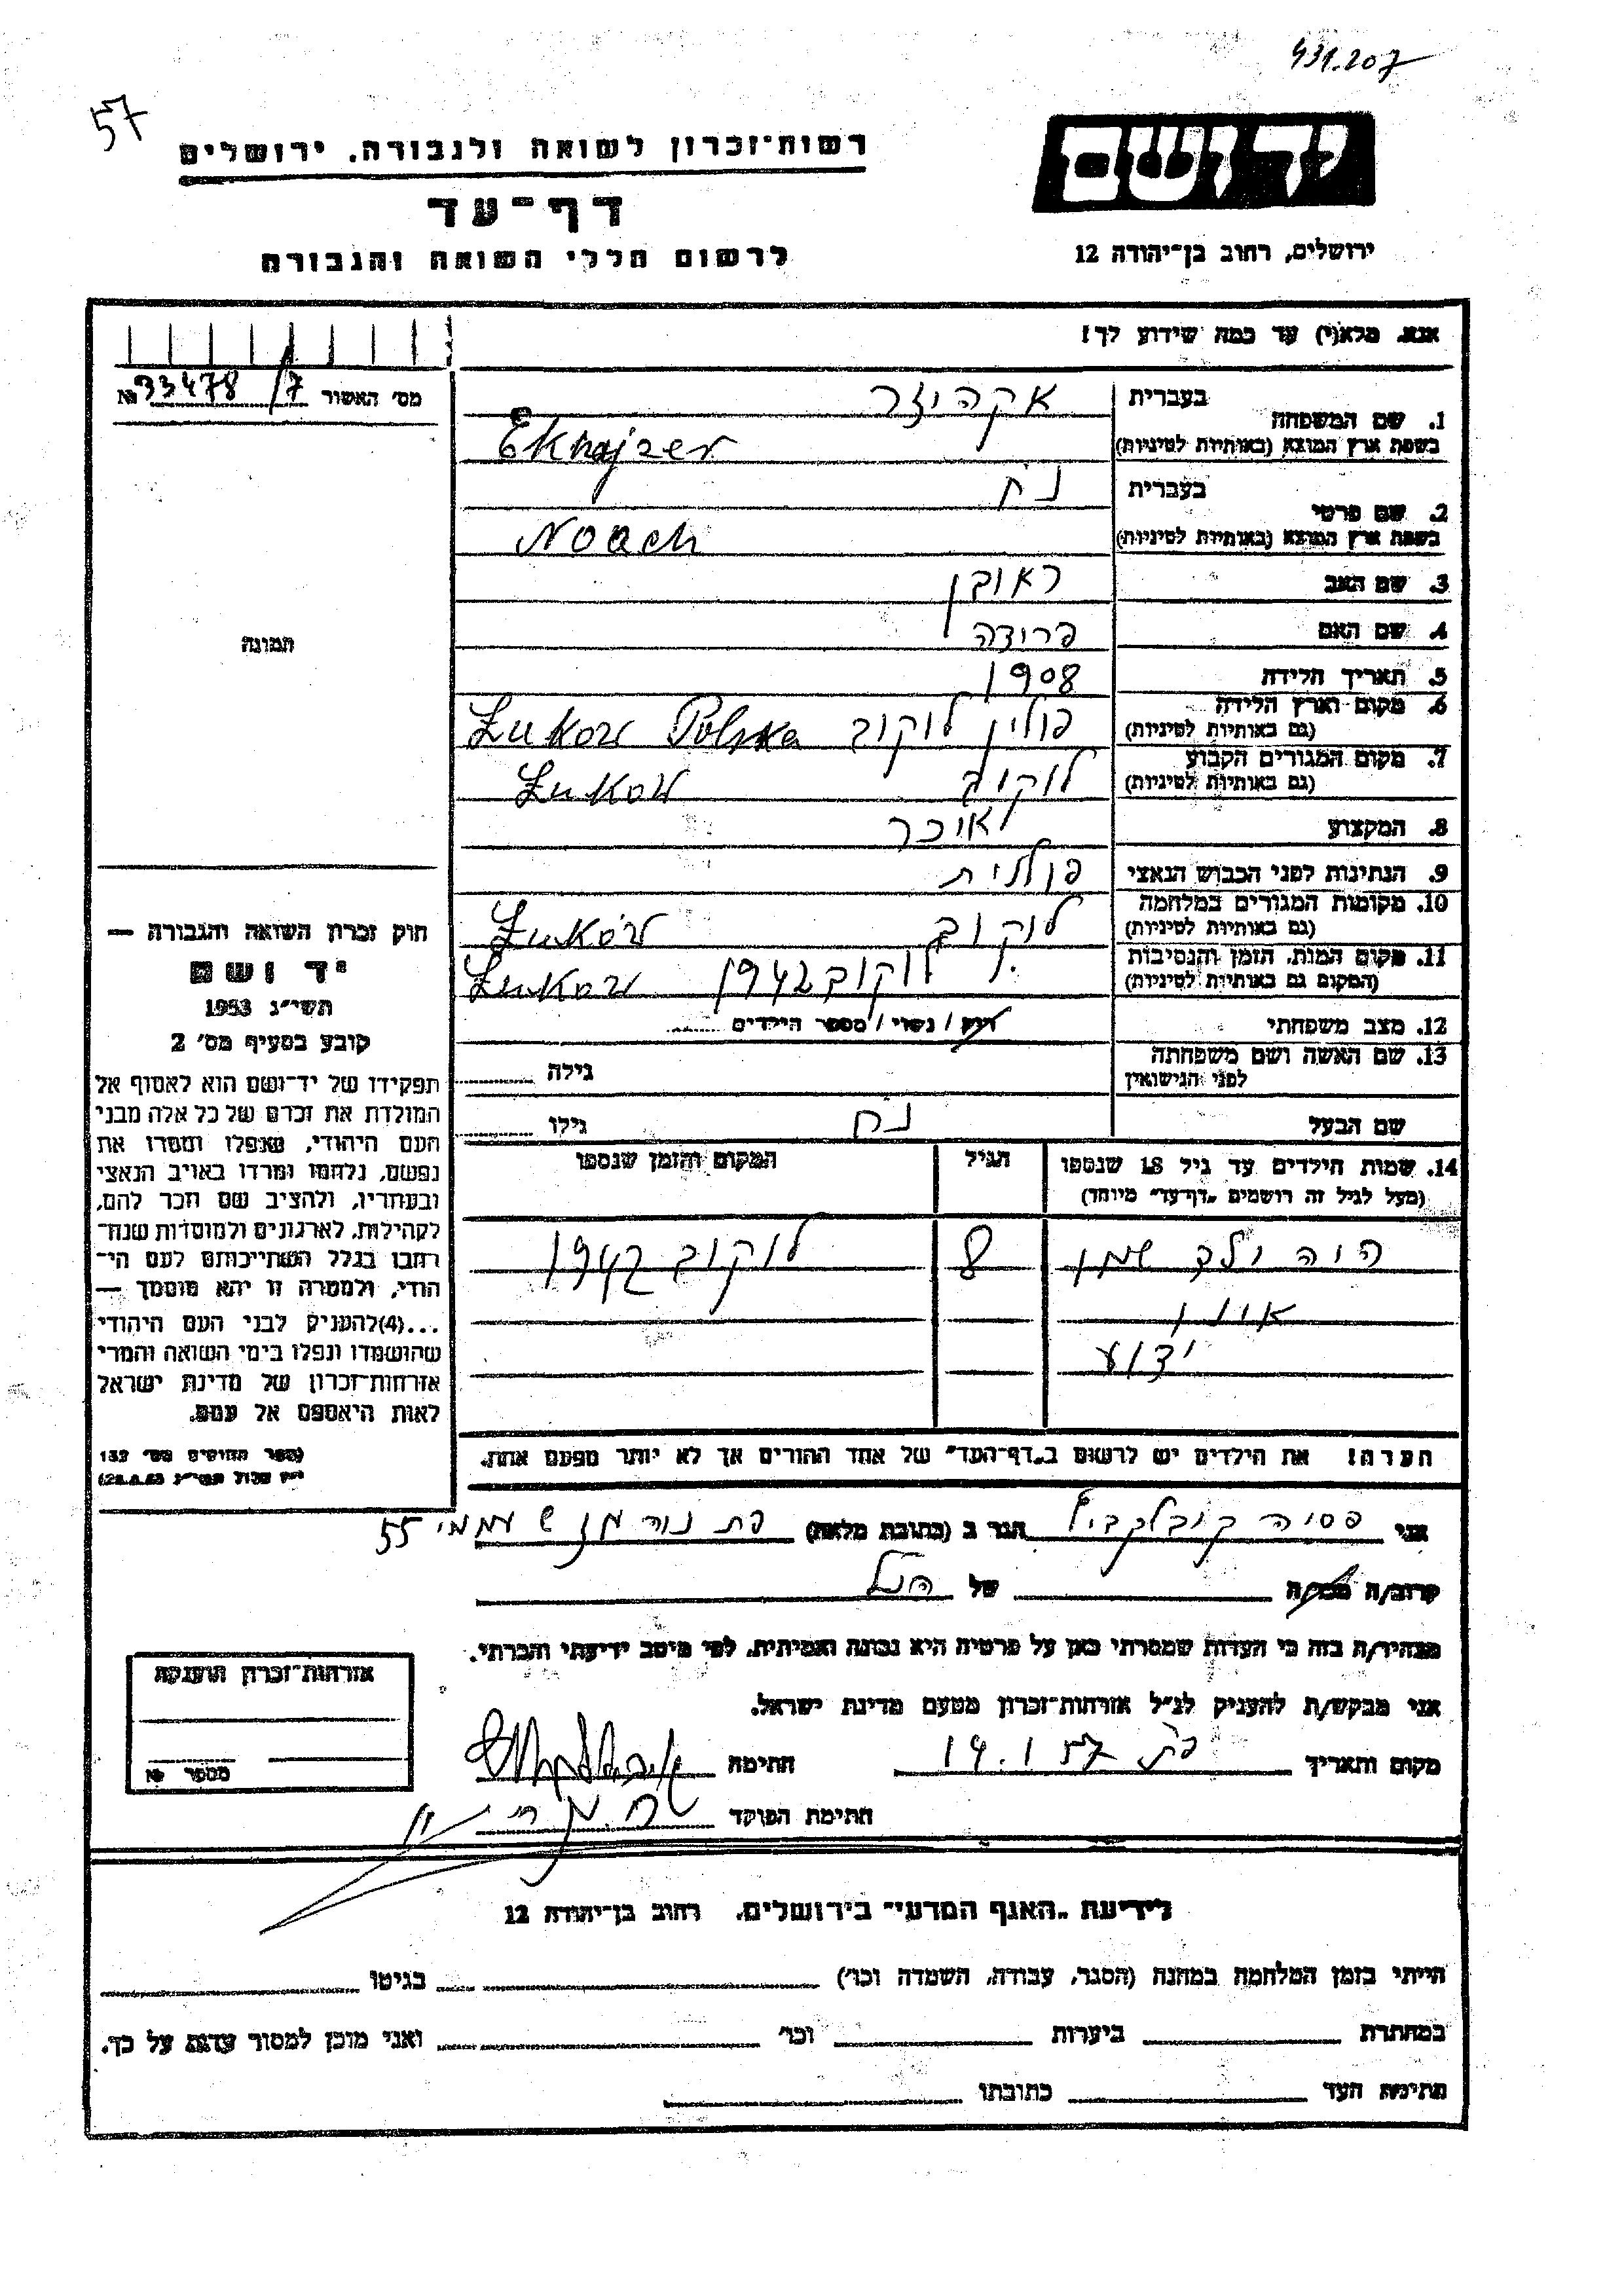 431.207
57
יד ושם
רשות־זכרון לשואה ולגבורה, ירושלים
דף־עד
לרשום חללי השואה והגבורה
ירושלים, רחוב בן־יהודה 12
אנא, מלא(י) עד כמה שידוע לך!
מס' האשור 33478/7 №
1. שם המשפחה
בעברית אקהיזר
בשפת ארץ המוצא (באותיות לטיניות) Ekhajzer
2. שם פרטי
בעברית נח
בשפת ארץ המוצא (באותיות לטיניות) Noach
3. שם האב ראובן
4. שם האם פרידה
5. תאריך הלידה 1908
6. מקום וארץ הלידה
(גם באותיות לטיניות) פולין לוקוב Łukow Polska
7. מקום המגורים הקבוע
(גם באותיות לטיניות) לוקוב Łukow
8. המקצוע
9. הנתינות לפני הכבוש הנאצי פולנית
10. מקומות המגורים במלחמה
(גם באותיות לטיניות) לוקוב Łuków
11. מקום המות, הזמן והנסיבות
(המקום גם באותיות לטיניות) לוקוב 1942 Łukow
12. מצב משפחתי רווק / נשוי / מספר הילדים
13. שם האשה ושם משפחתה
לפני הנישואין
גילה
שם הבעל נח גילו
14. שמות הילדים עד גיל 18 שנספו
(מעל לגיל זה רושמים "דף־עד" מיוחד)
הגיל
המקום והזמן שנספו
היה ילד שמו 8 לוקוב 1942
אינו
ידוע
הערה! את הילדים יש לרשום ב"דף־העד" של אחד ההורים אך לא יותר מפעם אחת.
תמונה
חוק זכרון השואה והגבורה —
יד ושם
תשי"ג 1953
קובע בסעיף מס' 2
תפקידו של יד־ושם הוא לאסוף אל
המולדת את זכרם של כל אלה מבני
העם היהודי, שנפלו ומסרו את
נפשם, נלחמו ומרדו באויב הנאצי
ובעוזריו, ולהציב שם וזכר להם,
לקהילות, לארגונים ולמוסדות שנח־
רבו בגלל השתייכותם לעם הי־
הודי, ולמטרה זו יהא מוסמך —
...(4)להעניק לבני העם היהודי
שהושמדו ונפלו בימי השואה והמרי
אזרחות־זכרון של מדינת ישראל
לאות היאספם אל עמם.
(ספר החוקים מס' 132
אני פסיה הגר ב (כתובת מלאה) 55
קרוב/ה מכר/ה של הנ"ל
מצהיר/ה בזה כי העדות שמסרתי כאן על פרטיה היא נכונה ואמיתית, לפי מיטב ידיעתי והכרתי.
אני מבקש/ת להעניק לנ"ל אזרחות־זכרון מטעם מדינת ישראל.
מקום ותאריך פת 14.1.57 חתימה
חתימת הפוקד
אזרחות־זכרון הוענקה
מספר №
לידיעת "האגף המדעי" בירושלים, רחוב בן־יהודה 12
הייתי בזמן המלחמה במחנה (הסגר, עבודה, השמדה וכו') בגיטו
במחתרת ביערות וכו' ואני מוכן למסור עדות על כך.
חתימת העד כתובתו